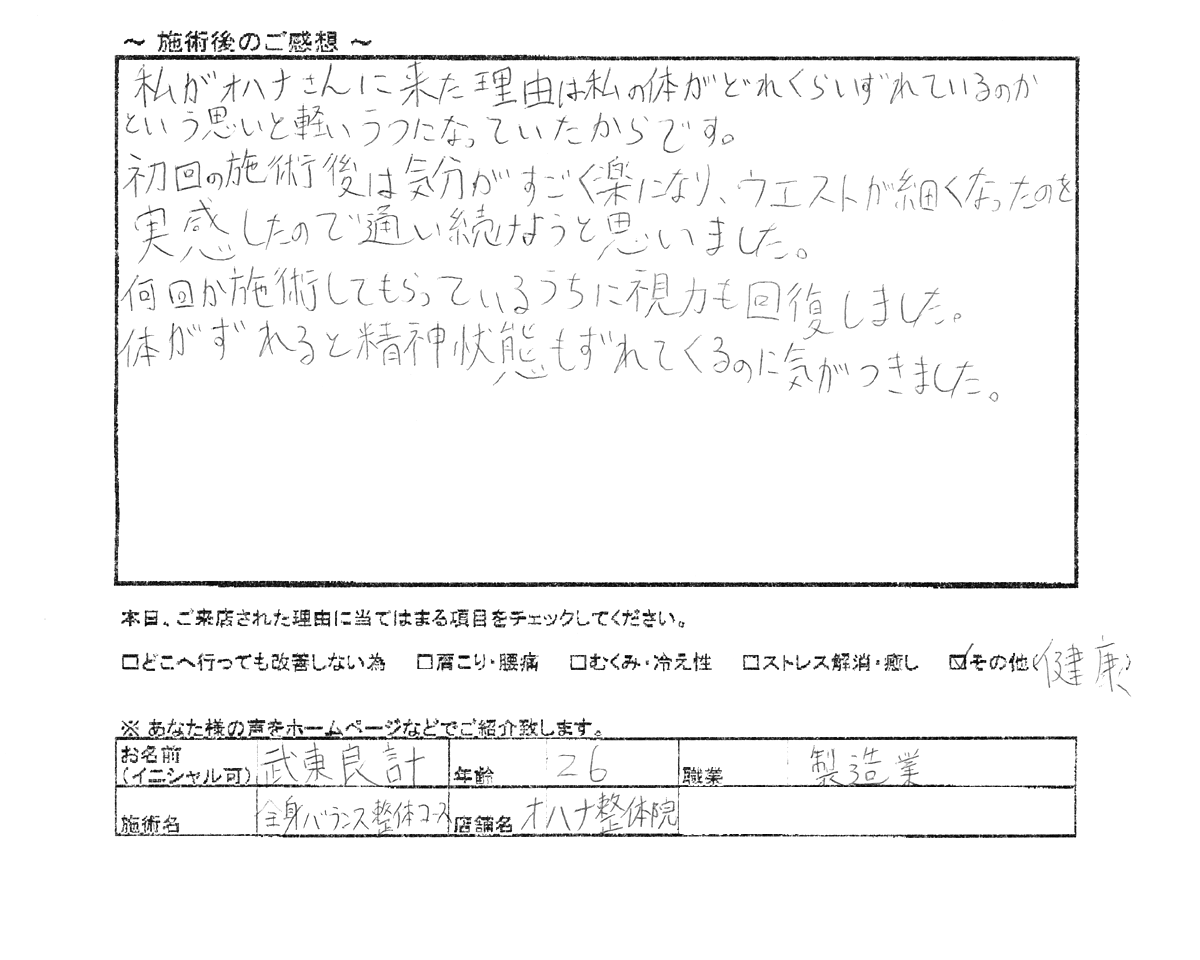 ～ 施術後のご感想 ～
私がオハナさんに来た理由は私の体がどれくらいずれているのか
という思いと軽いうつになっていたからです。
初回の施術後は気分がすごく楽になり、ウエストが細くなったのを
実感したので通い続けようと思いました。
何回か施術してもらっているうちに視力も回復しました。
体がずれると精神状態もずれてくるのに気がつきました。
本日、ご来店された理由に当てはまる項目をチェックしてください。
□どこへ行っても改善しない為 □肩こり・腰痛 □むくみ・冷え性 □ストレス解消・癒し ☑その他(健康)
※ あなた様の声をホームページなどでご紹介致します。
お名前
(イニシャル可) 武東良計 年齢 26 職業 製造業
施術名 全身バランス整体コース 店舗名 オハナ整体院